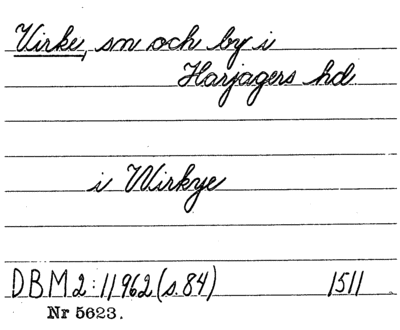 Virke, sn och by i
Harjagers hd
i Wirkye
DBM 2:11962 (s. 84) 1511
Nr 5623.